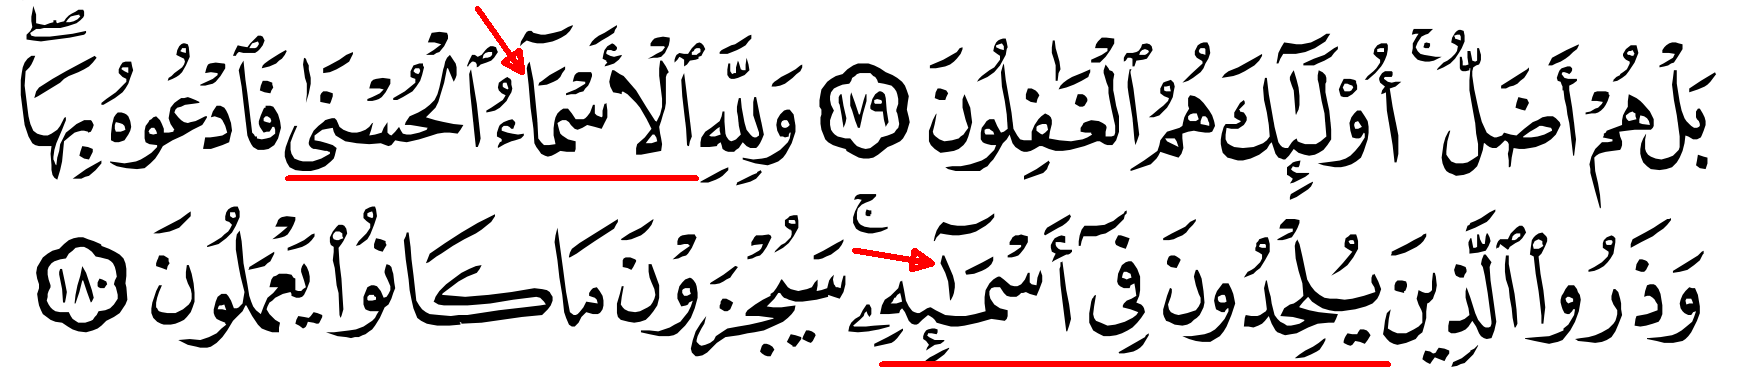 بَلْ هُمْ أَضَلُّ ۚ أُوْلَٰٓئِكَ هُمُ ٱلْغَٰفِلُونَ ١٧٩ وَلِلَّهِ ٱلْأَسْمَآءُ ٱلْحُسْنَىٰ فَٱدْعُوهُ بِهَا ۖ
وَذَرُوا۟ ٱلَّذِينَ يُلْحِدُونَ فِىٓ أَسْمَٰٓئِهِۦ ۚ سَيُجْزَوْنَ مَا كَانُوا۟ يَعْمَلُونَ ١٨٠